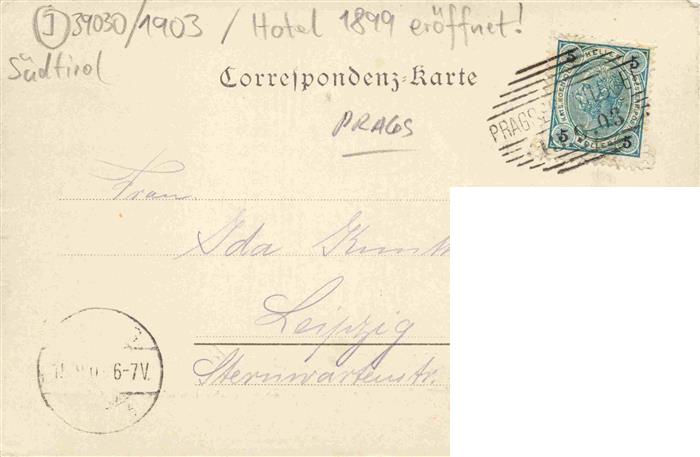 I 39030/1903 / Hotel 1899 eröffnet!
Südtirol
Correspondenz-Karte
PRAGS
5 5
PRAGS
03
5 5
Frau
Ida
Leipzig
Sternwartenstr.
6-7V.